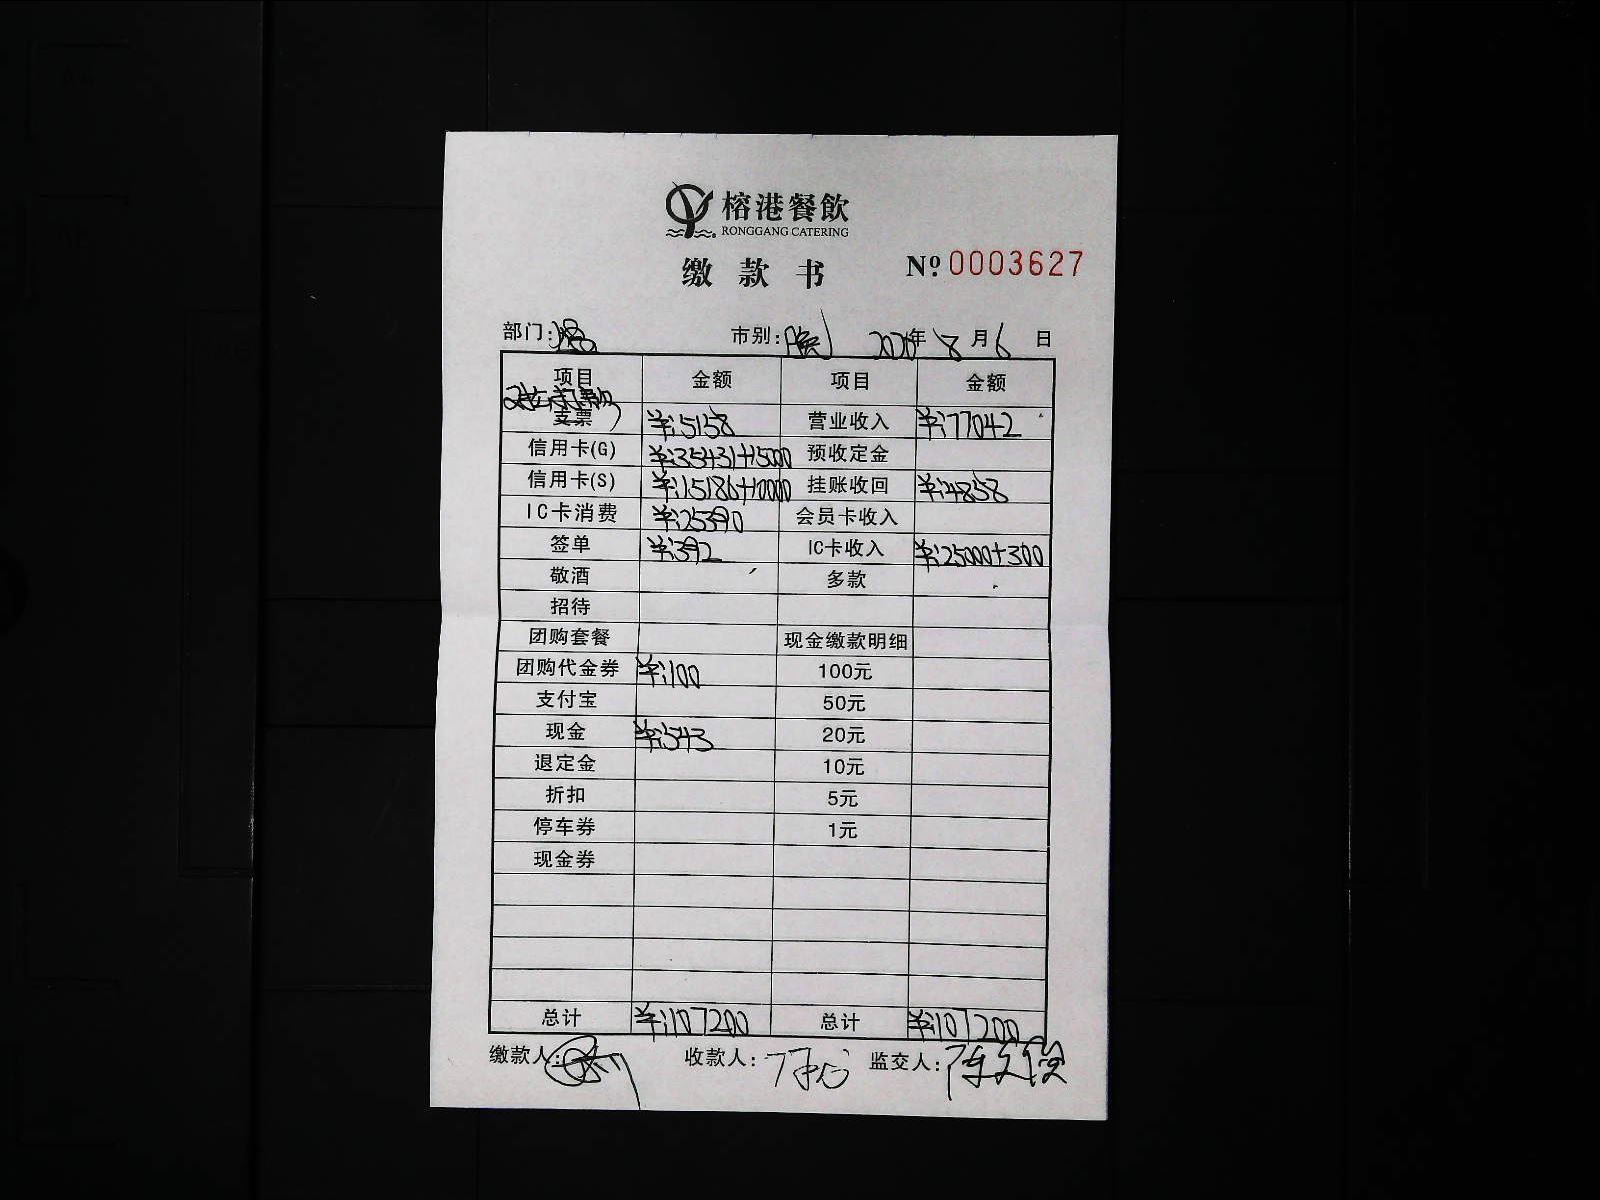 榕港餐飲
RONGGANG CATERING
缴款书 Nº 0003627
部门: 市别: 2020年 8月 6日
项目 金额 项目 金额
支票 ¥:5158 营业收入 ¥:77042
信用卡(G) ¥:35431+15000 预收定金
信用卡(S) ¥:15186+10000 挂账收回 ¥:4858
IC卡消费 ¥:25390 会员卡收入
签单 ¥:392 IC卡收入 ¥:25000+300
敬酒 多款
招待
团购套餐 现金缴款明细
团购代金券 ¥:100 100元
支付宝 50元
现金 ¥:543 20元
退定金 10元
折扣 5元
停车券 1元
现金券
总计 ¥:107200 总计 ¥:107200
缴款人: 收款人: 监交人: